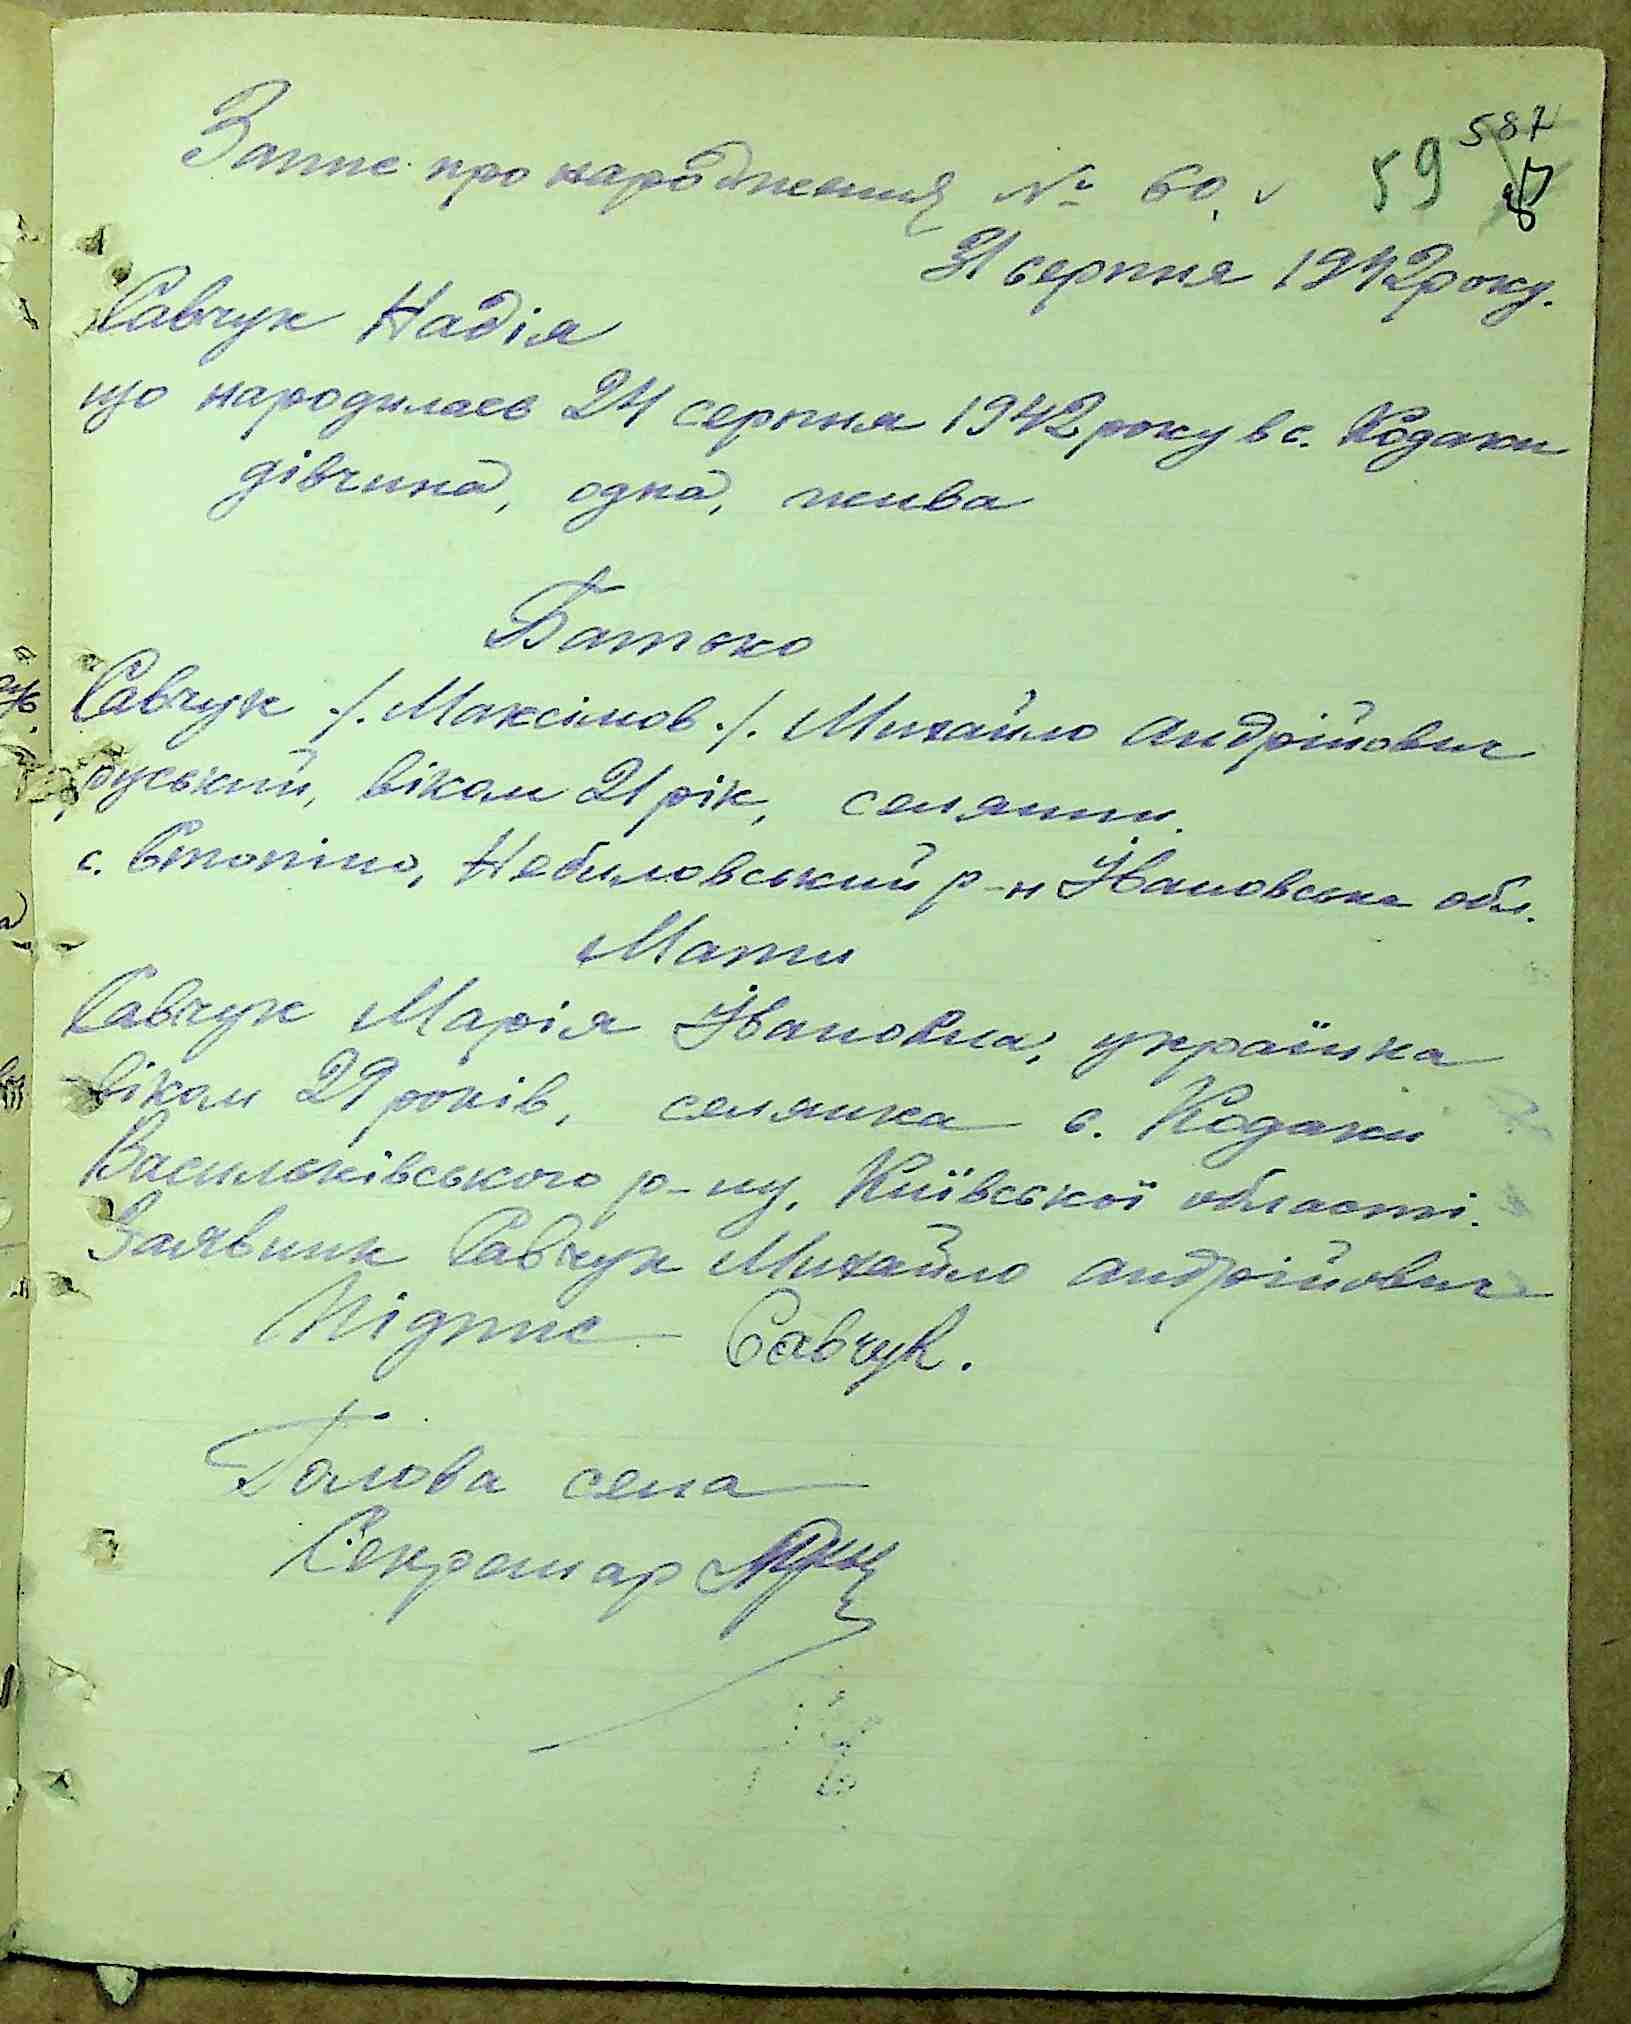 587
59
87
Запис про народження № 60.
31 серпня 1942 року.
Савчук Надія
що народилась 24 серпня 1942 року в с. Кодаки
дівчина, одна, жива
Батько
Савчук /. Максімов ./. Михайло Андрійович
руський, віком 21 рік, селянин.
с. Стопіно, Небиловський р-н Івановська обл.
Мати
Савчук Марія Івановна, українка
віком 29 років, селянка с. Кодаки
Васильківського р-ну, Київської області.
Заявник Савчук Михайло Андрійович
Підпис Савчук.
Голова села
Секретар